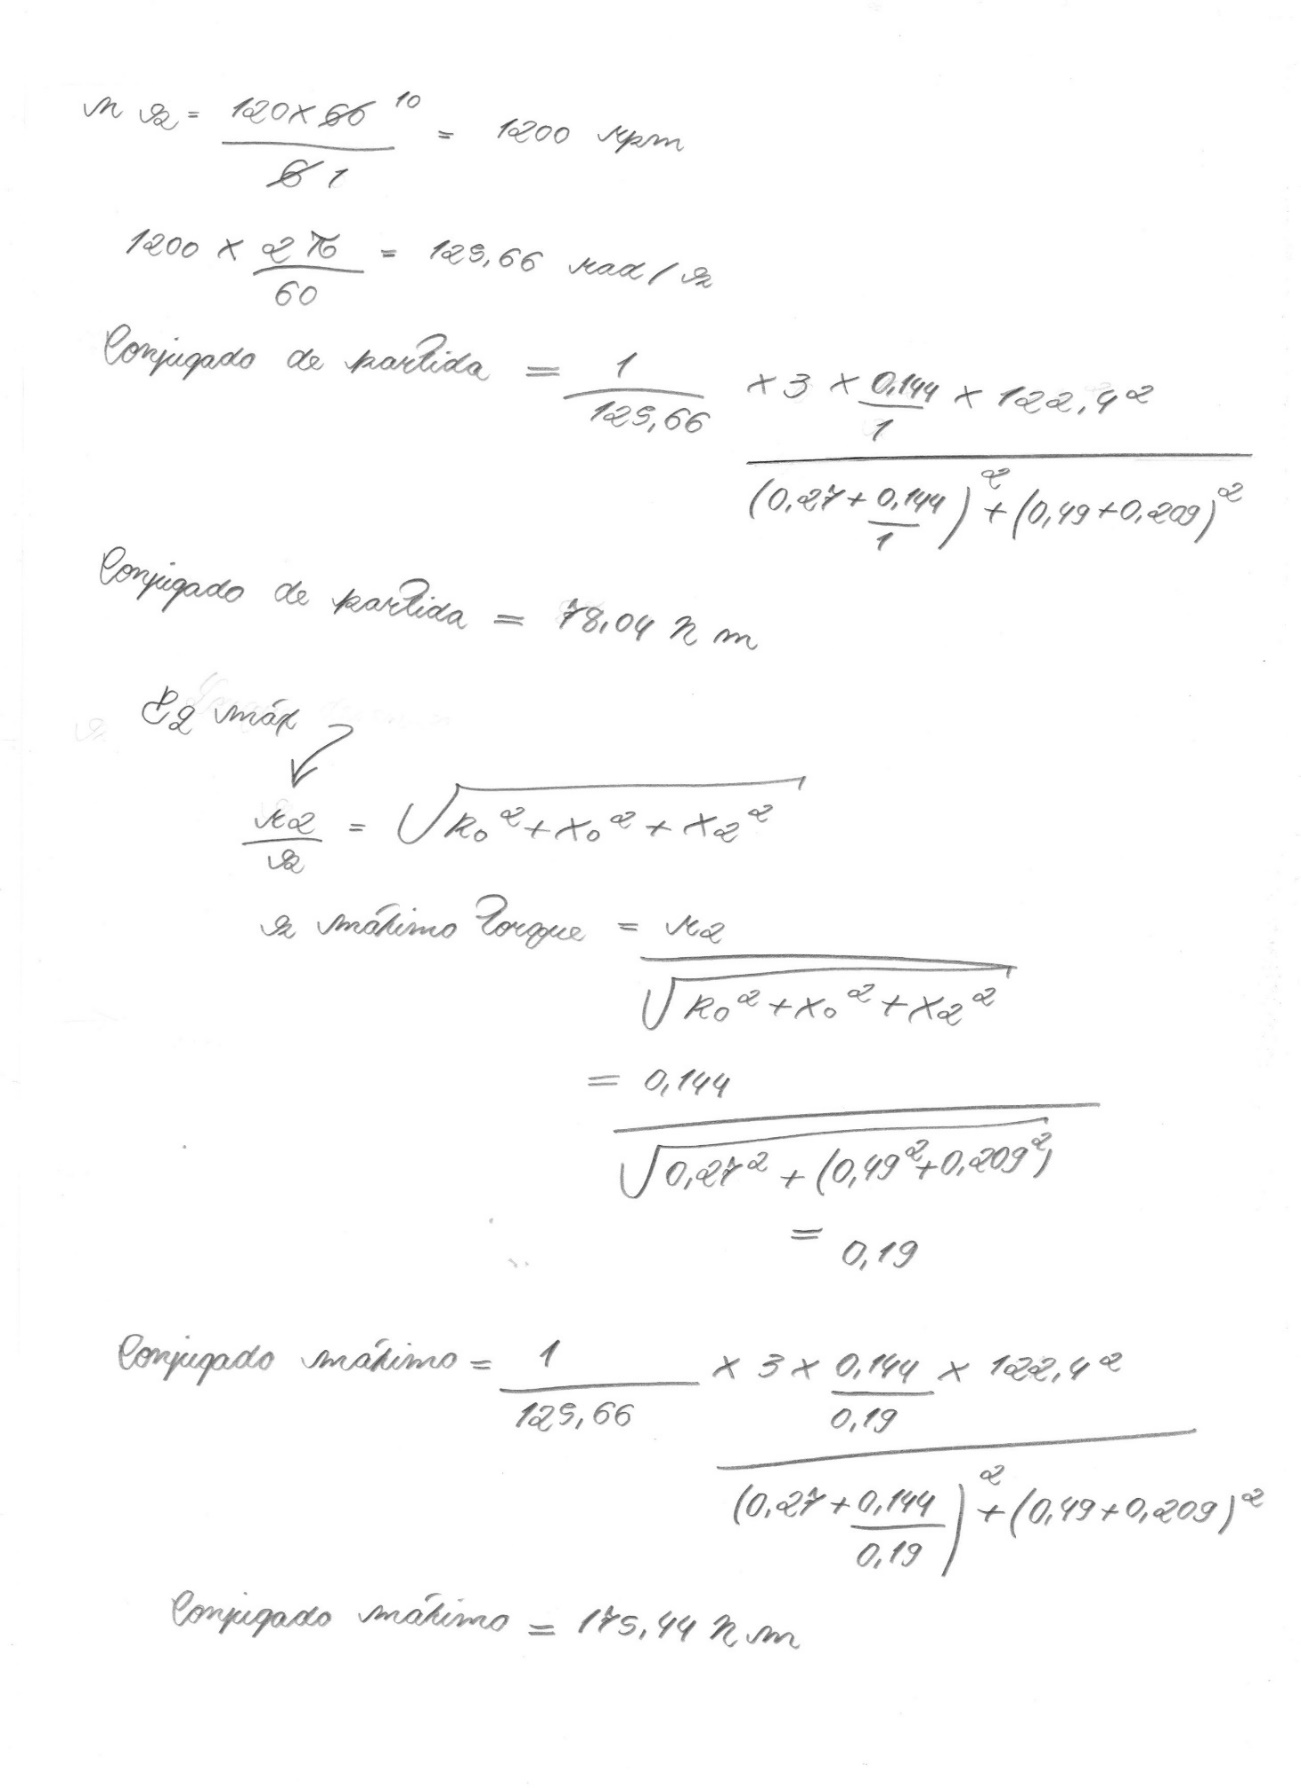 ns = 120 x 60 10 / 6 1 = 1200 rpm
1200 x 2π / 60 = 125,66 rad/s
Conjugado de partida = 1 / 125,66 x 3 x 0,144 / 1 x 122,4² / (0,27 + 0,144 / 1)² + (0,49 + 0,209)²
Conjugado de partida = 78,04 N m
máx
r2 / s = √R0² + X0² + X2²
s máximo torque = r2 / √R0² + X0² + X2²
= 0,144 / √0,27² + (0,49² + 0,209²)
= 0,19
Conjugado máximo = 1 / 125,66 x 3 x 0,144 / 0,19 x 122,4² / (0,27 + 0,144 / 0,19)² + (0,49 + 0,209)²
Conjugado máximo = 175,44 N m